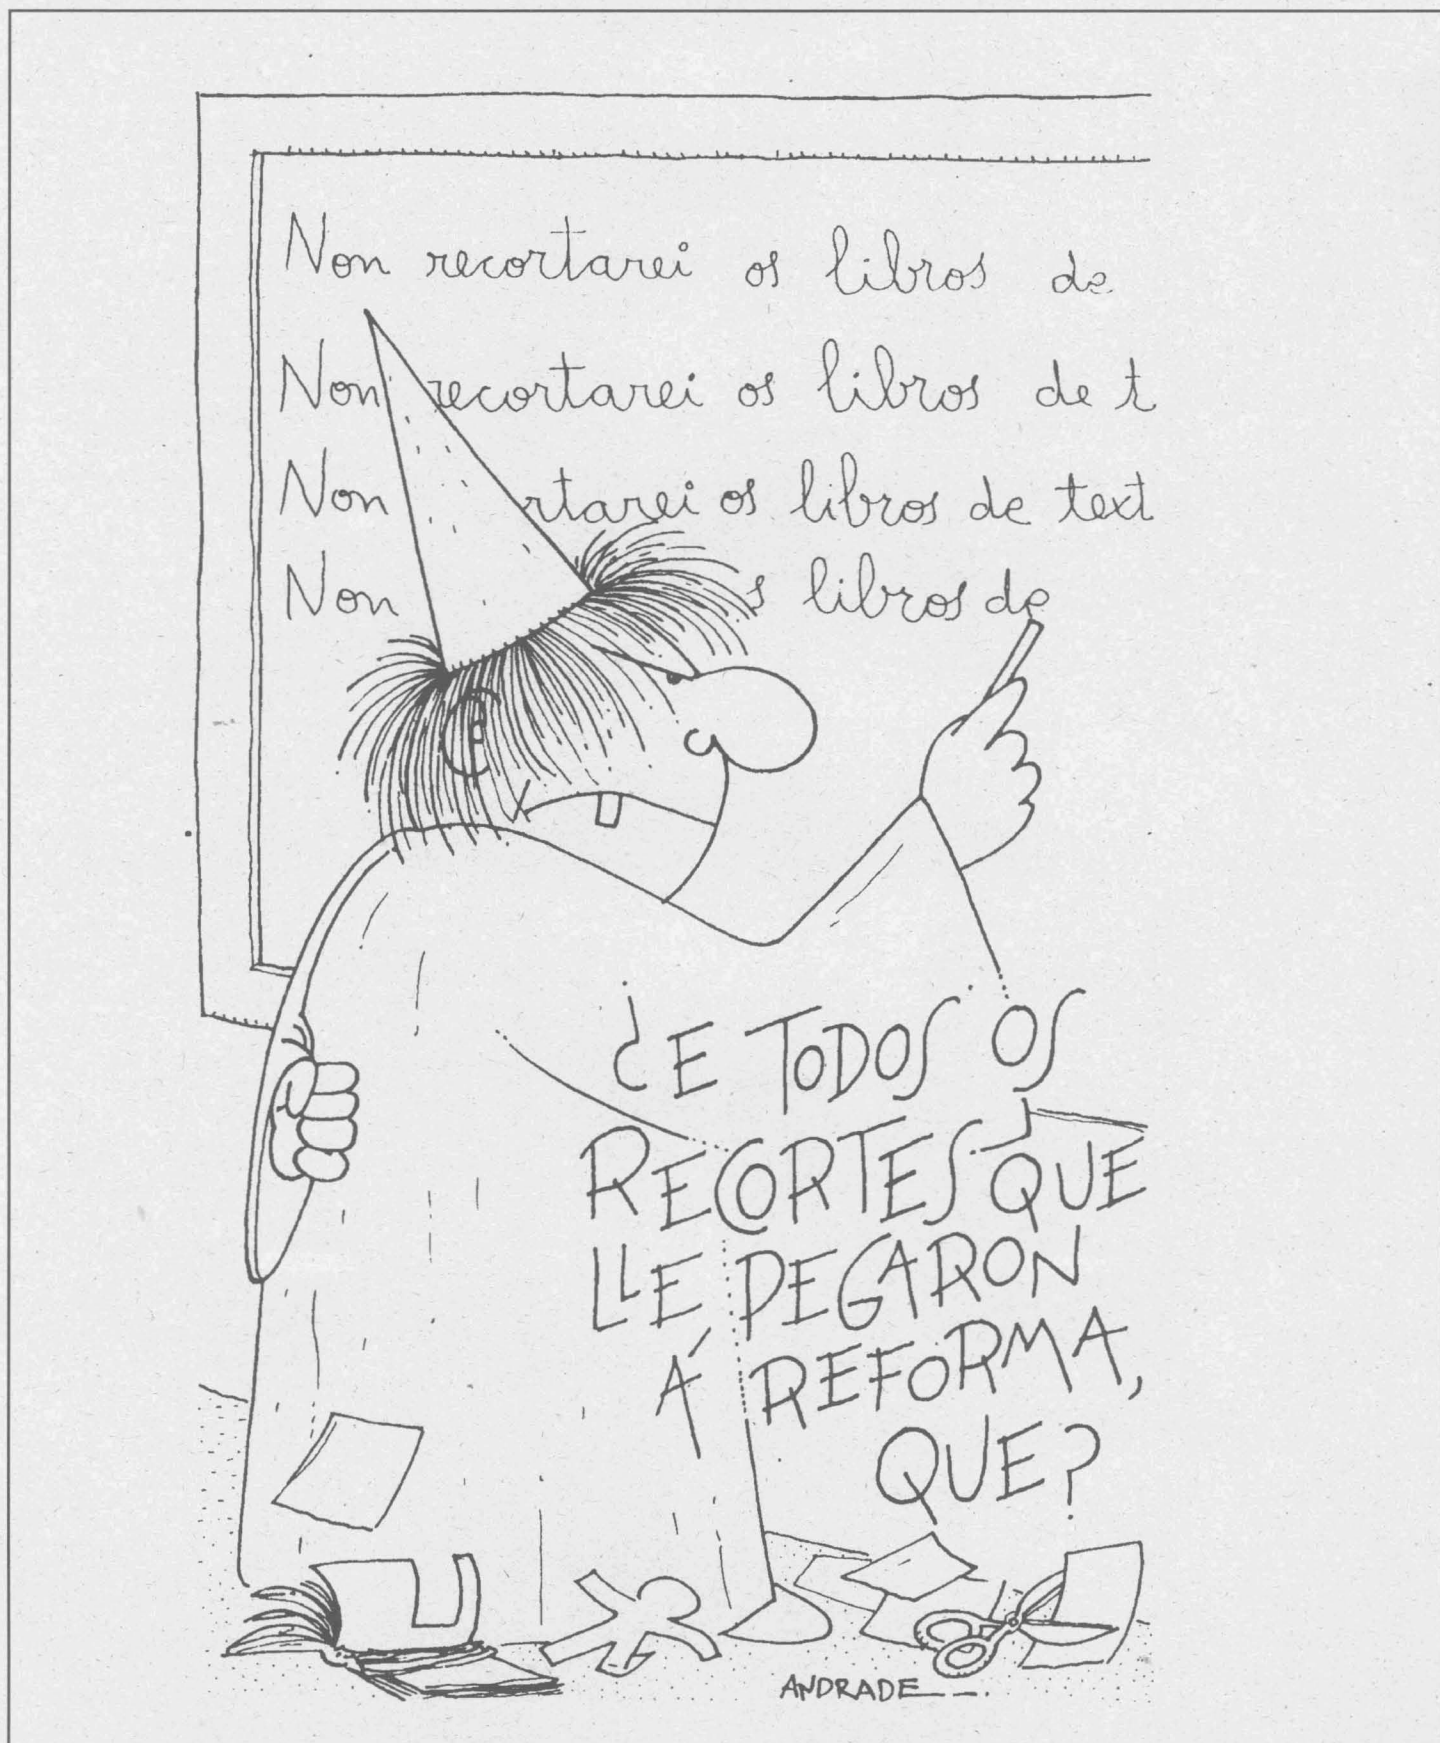 Non recortarei os libros de
Non recortarei os libros de t
Non rtarei os libros de text
Non s libros de
¿E TODOS OS
RECORTES QUE
LLE PEGARON
Á REFORMA,
QUE?
ANDRADE